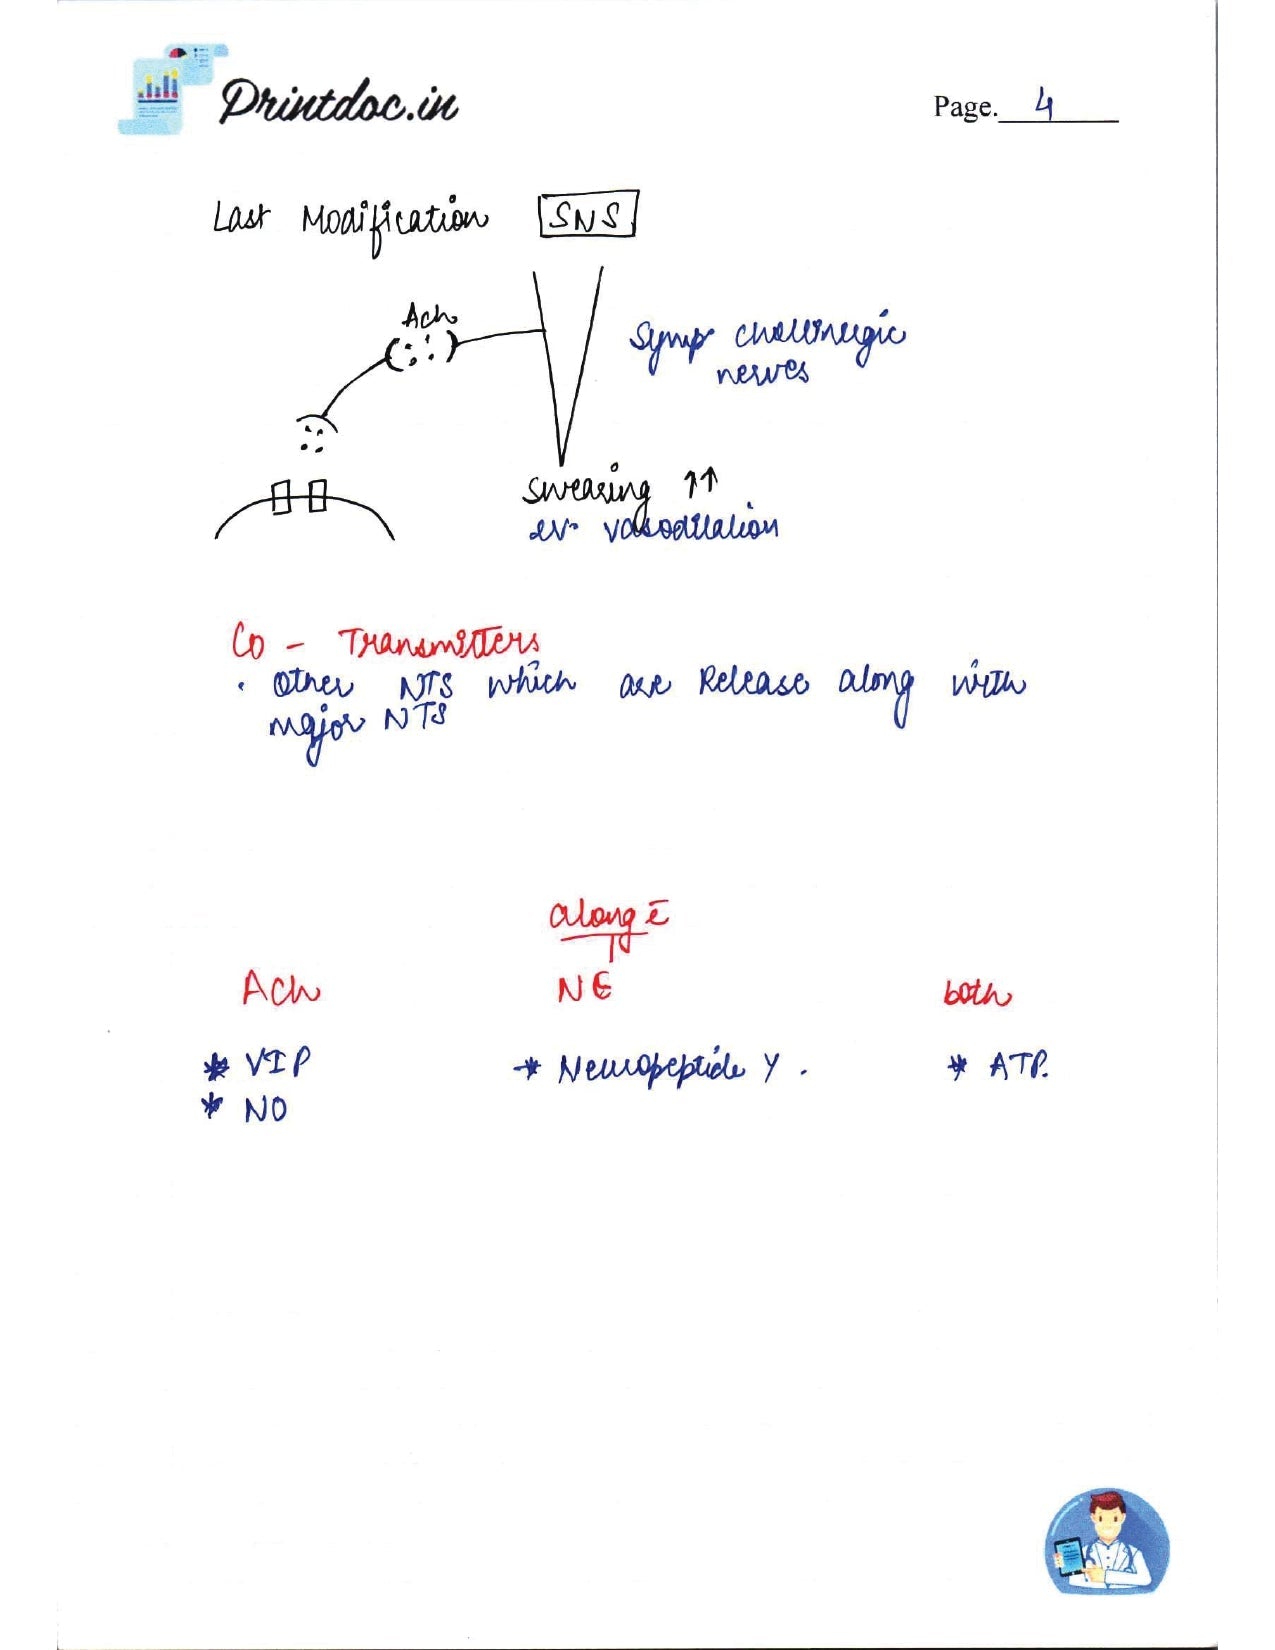 Printdoc.in
Page. 4
Last Modification SNS
Ach
Symp cholinergic
nerves
Swearing ↑↑
vasodilation
Co - Transmitters
• Other NTS which are Release along with
major NTS
along c̄
Ach NE both
* VIP * Neuropeptide Y . * ATP.
* NO